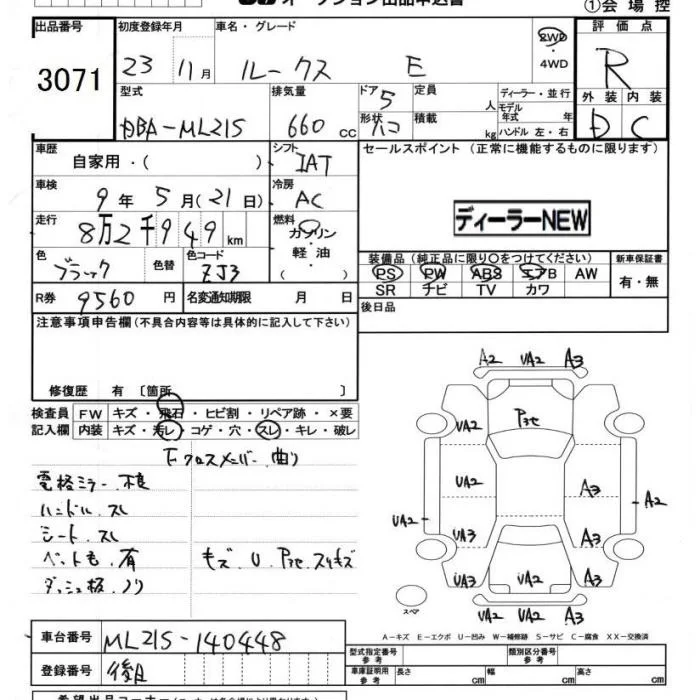 オークション出品申込書
①会場控
出品番号 初度登録年月 車名・グレード 評価点
3071 23 11月 ルークス E 2WD・4WD R
型式 排気量 ドア 5 定員 人 ディーラー・並行 外装 内装
DBA-ML21S 660 cc 形状 ハコ 積載 kg モデル年式 年 ハンドル 左・右 D C
車歴 自家用・( ) シフト IAT セールスポイント (正常に機能するものに限ります)
車検 9年 5月(21日) 冷房 AC
ディーラーNEW
走行 8万2千949km 燃料 ガソリン
軽油
( )
色 ブラック 色替 色コード ZJ3 装備品(純正品に限り○をつけてください) 新車保証書
PS PW ABS エアB AW 有・無
SR ナビ TV カワ
R券 9560円 名変通知期限 月 日 後日品
注意事項申告欄(不具合内容等は具体的に記入して下さい)
修復歴 有 〔箇所 〕
検査員 FW キズ・飛石・ヒビ割・リペア跡・×要
記入欄 内装 キズ・汚レ・コゲ・穴・スレ・キレ・破レ
Fクロスメンバー曲り
電格ミラー不良
ハンドル.スレ
シート.スレ
ペット毛.有 キズ.U.Pアセ.スリキズ
ダッシュ板.ノリ
A2 UA2 A3
Pアセ
UA2
UA2 A3
UA2 A2
UA3 A3
UA3 UA2 A3
UA2
スペア
A-キズ E-エクボ U-凹み W-補修跡 S-サビ C-腐食 XX-交換済
車台番号 ML21S-140448 型式指定番号 参考 類別区分番号 参考
登録番号 後日 車庫証明用 参考 長さ cm 幅 cm 高さ cm
希望出品コーナー